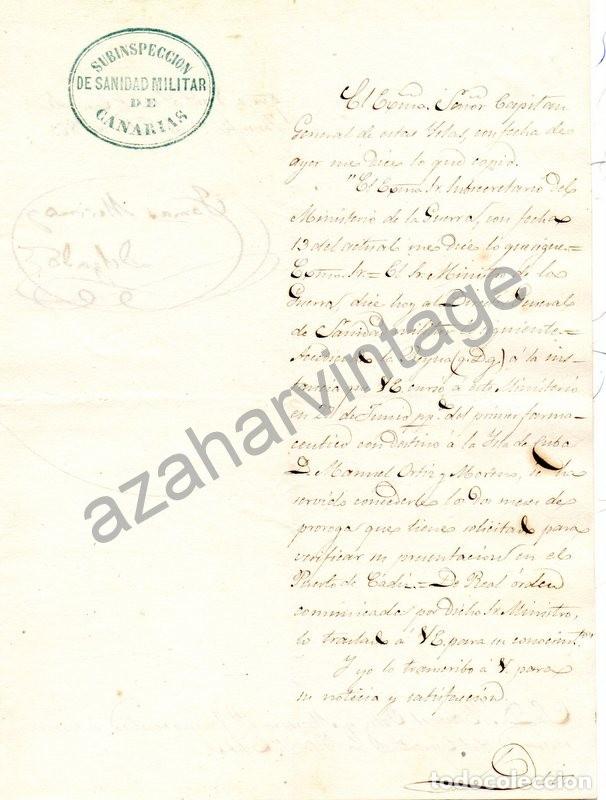 SUBINSPECCION
DE SANIDAD MILITAR
DE
CANARIAS
El Exmo. Señor Capitan
General de estas Yslas, con fecha de
ayer me dice lo que copio.
"El Exmo. Sr. Subsecretario del
Ministerio de la Guerra, con fecha
13 del actual me dice lo que sigue.=
Exmo. Sr.= El Sr. Ministro de la
Guerra dice hoy al Director General
de Sanidad militar lo siguiente.=
Accediendo la Reyna (q. D. g.) á la ins-
tancia que VE cursó á este Ministerio
en 20 de Junio pp.º del primer farma-
ceutico con destino á la Ysla de Cuba
D. Manuel Ortiz y Moreno, se ha
servido concederle los dos meses de
proroga que tiene solicitada para
verificar su presentacion en el
Puerto de Cádiz.= De Real órden
comunicada por dicho Sr. Ministro,
lo traslado á VE. para su conocim.to"
Y yo lo transcribo á V. para
su noticia y satisfaccion.
azaharvintage
todocoleccion